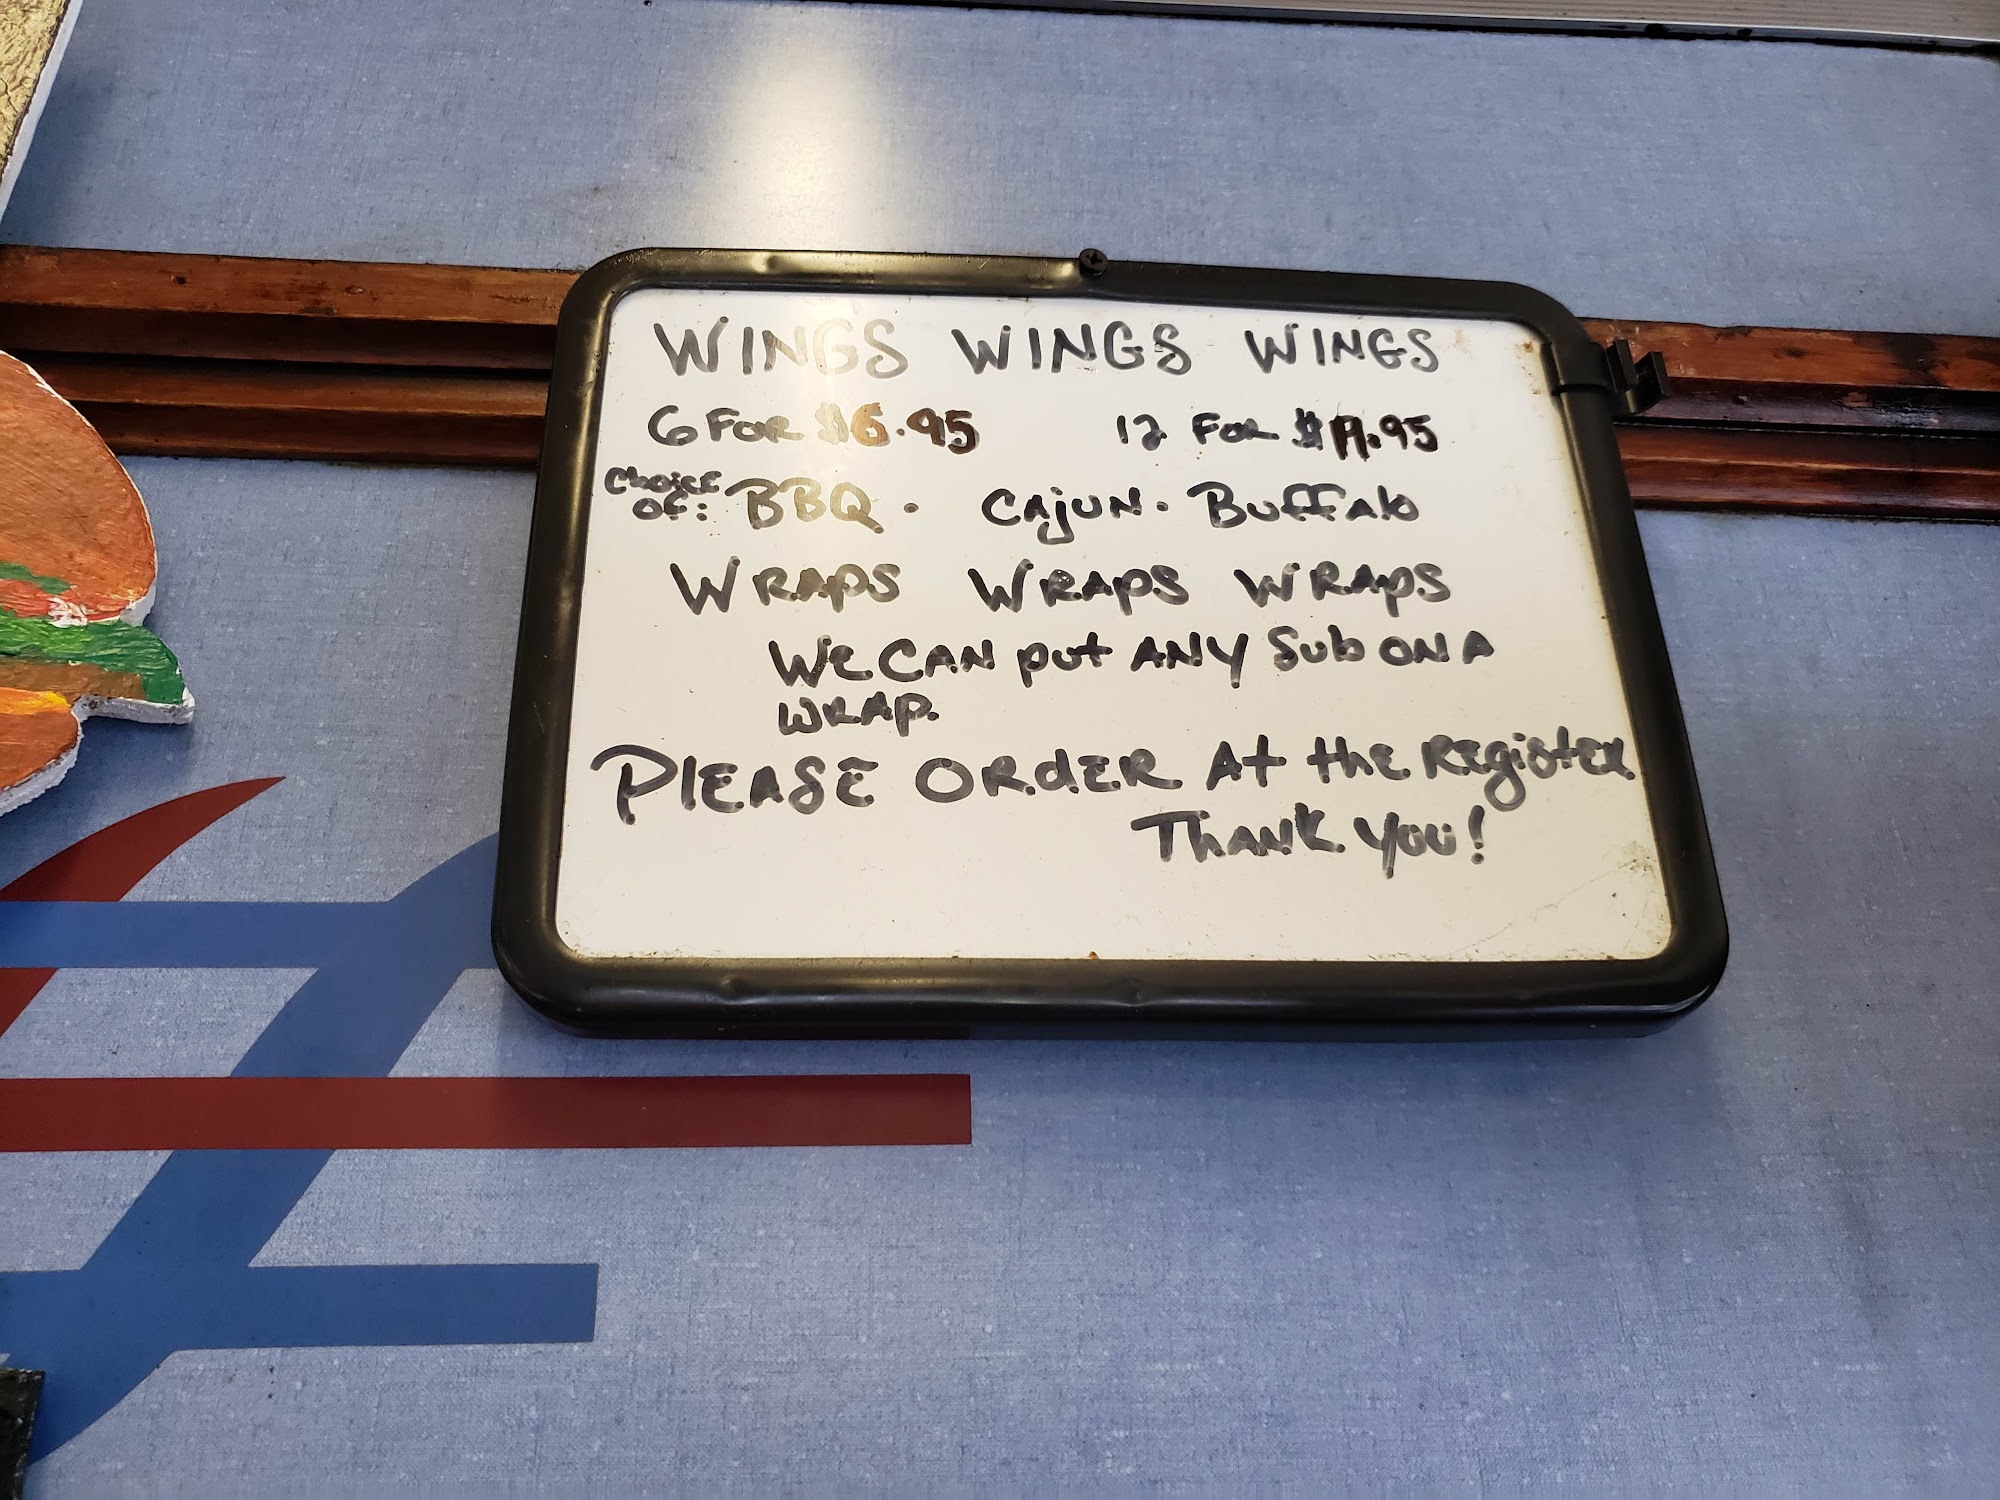 WINGS WINGS WINGS
6 FOR $6.95 12 FOR $11.95
CHOICE OF: BBQ. CAJUN. BUFFALO
WRAPS WRAPS WRAPS
WE CAN put ANY Sub ON A
WRAP.
PLEASE ORDER At the Register
THANK YOU!